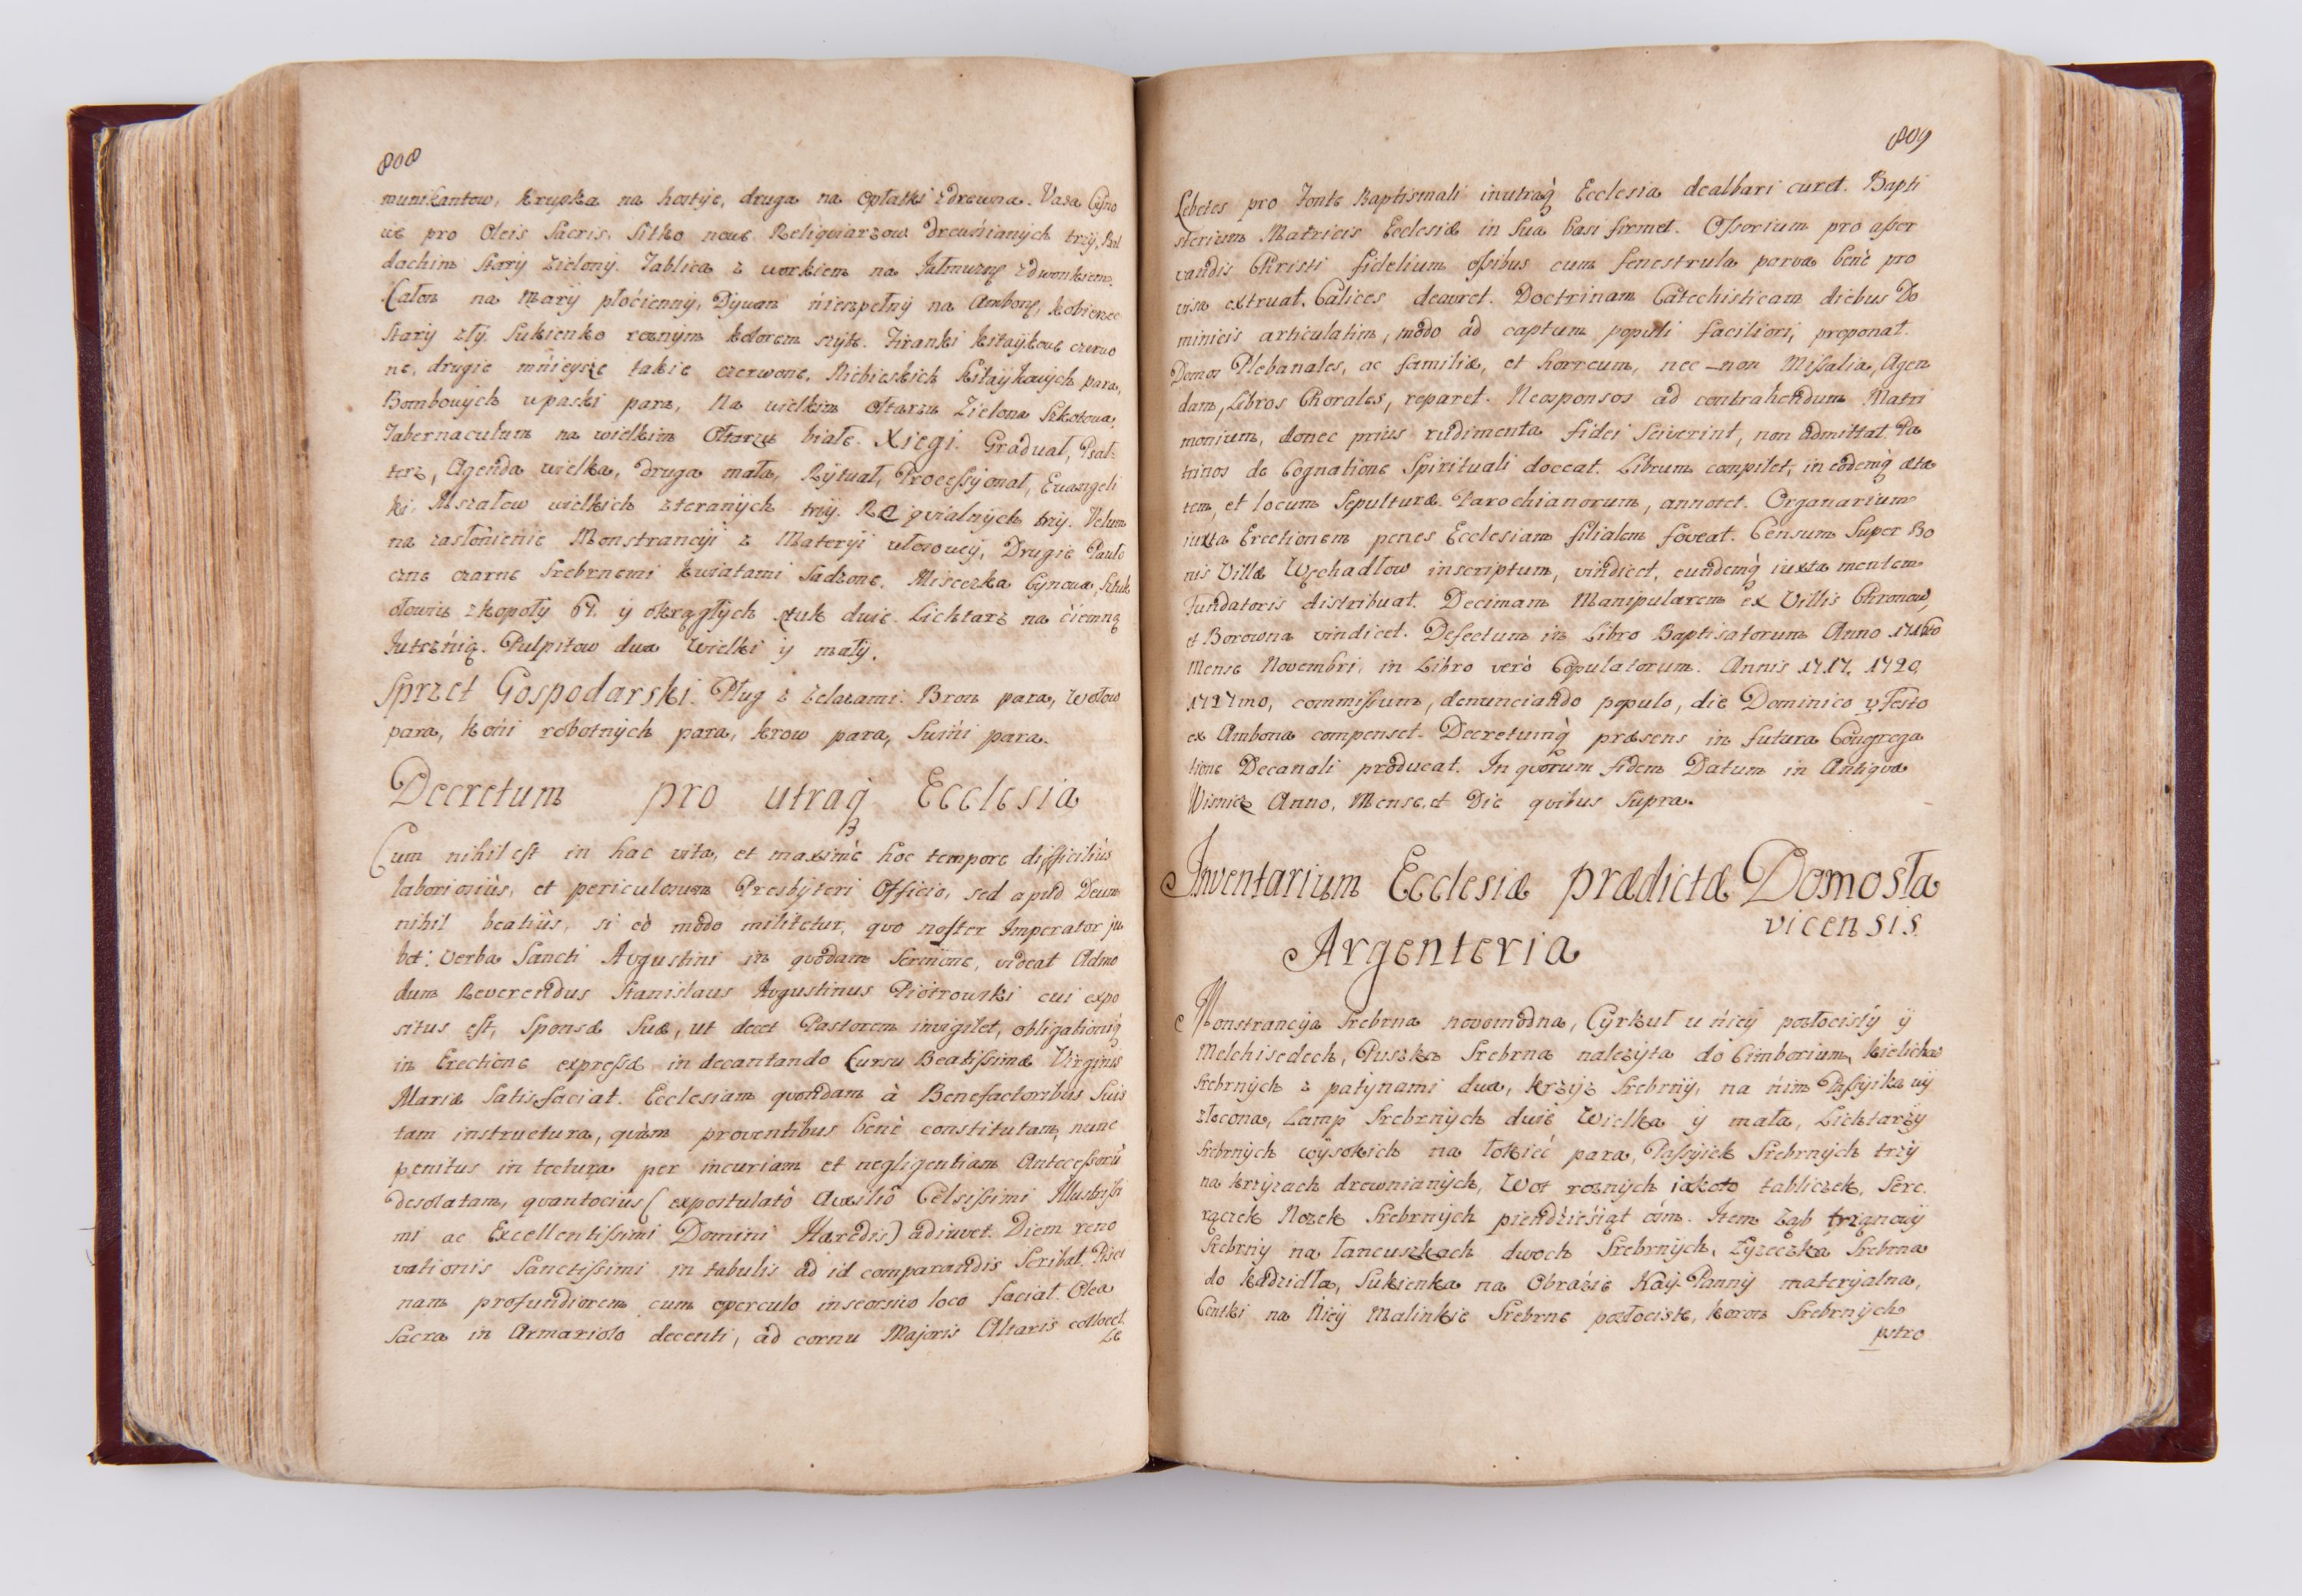 808
munikantow, krupka na hostye, druga na opłatki z drewna. Vasa Cyno
we pro Oleis Sacris. Sitko nowe. Religwiarzow drewnianych trzy, Bal
dachim stary zielony. Tablica z workiem na Jałmużnę z dwonkiem.
Całon na Mary płocienny, Dywan nieszpetny na Ambonę, kobierzec
stary zły. Sukienko roznym kolorem szyte. Firanki kitaykowe czerwo
ne, drugie mnieysze takie czerwone, Niebieskich kitaykowych para,
Bombowych w paski para, Na wielkim Ołtarzu Zielona Szkotowa,
Tabernaculum na wielkim Ołtarzu białe. Xiegi. Graduał, Psał:
terz, Agenda wielka, druga mała, Rytuał, Processyonał, Euangeli
ki, Mszałow wielkich zteranych trzy. Reqvialnych trzy. Velum
na zasłonienie Monstrancyi z Materyi włosowey, Drugie Pawło
czne czarne Srebrnemi kwiatami Sadzone. Miseczka Cynowa, Sztuk
ołowiu z kopoły 67. y okrągłych sztuk dwie. Lichtarz na ciemną
Jutrznię. Pulpitow dwa Wielki y mały.
Sprzet Gospodarski. Pług z zelazami. Bron para, Wołow
para, koni robotnych para, krow para, Swini para.
Decretum pro utraq Ecclesia
Cum nihil est in hac vita, et maximè hoc tempore difficiliùs
laboriosiùs, et periculosum Presbyteri Officio, sed apud Deum
nihil beatiùs, si eò modo militetur, quo noster Imperator ju
bet: Verba Sancti Avgustini in quodam Sermone, videat Admo
dum Reverendus Stanislaus Avgustinus Piotrowski cui expo
situs est, Sponsæ Suæ, ut decet Pastorem invigilet, obligationiq
in Erectione expressæ in decantando Cursu Beatissimæ Virginis
Mariæ Satisfaciat. Ecclesiam quondam à Benefactoribus Suis
tam instructura, quàm proventibus benè constitutam, nunc
penitus in tectura per incuriam et negligentiam Antecessorū
desolatam, quantociùs (expostulatô Auxiliô Celsissimi Illustrissi
mi ac Excellentissimi Domini Hæredis) adiuvet. Diem reno
vationis Sanctissimi in tabulis ad id comparandis Scribat. Pisci
nam profundiorem cum operculo inseorsivo loco faciat. Olea
Sacra in Armariolo decenti, ad cornu Majoris Altaris collocet.
Le
809
Lebetes pro Fonte Baptismali in utraq Ecclesia dealbari curet. Bapti
sterium Matricis Ecclesiæ in Sua basi firmet. Ossorium pro asser
vandis Christi fidelium ossibus cum fenestrula parva benè pro
visa extruat. Calices deauret. Doctrinam Catechisticam diebus Do
minicis articulatim, modo ad captum populi faciliori, proponat.
Domos Plebanales, ac familiæ, et horreum, nec-non Missalia, Agen
dam, Libros Chorales, reparet. Neosponsos ad contrahendum Matri
monium, donec priùs rudimenta fidei Sciverint, non admittat. Pa
trinos de Cognatione Spirituali doceat. Librum compilet, in eodemq æta
tem, et locum Sepulturæ Parochianorum, annotet. Organarium
iuxta Erectionem penes Ecclesiam filialem foveat. Censum Super Bo
nis Villæ Węchadłow inscriptum, vindicet, eundemq iuxta mentem
Fundatoris distribuat. Decimam Manipularem ex Villis Chronow,
et Borowna vindicet. Defectum in Libro Baptisatorum Anno
Mense Novembri, in Libro verò Copulatorum. Annis 1717. 1720,
1727mo, commissum, denunciando populo, die Dominico v Festo
ex Ambona compenset. Decretumq præsens in futura Congrega
tione Decanali producat. In quorum fidem Datum in Antiqua
Wisnicz Anno, Mense, et Die quibus Supra.
Inventarium Ecclesiæ prædictæ Domosła
vicensis
Argenteria
Monstrancya Srebrna novomodna, Cyrkuł u niey pozłocisty y
Melchisedech, Puszka Srebrna należyta do Cimborium, kielichow
Srebrnych z patynami dwa, krzyż Srebrny, na nim Passyika wy
złocona, Lamp Srebrnych dwie Wielka y mała, Lichtarzy
Srebrnych wysokich na łokieć para, Passyiek Srebrnych trzy
na krzyzach drewnianych, Wot roznych jakoto tabliczek, Serc.
rączek Nozek Srebrnych piendziesiąt ósm. Item Ząb
Srebrny na łancuszkach dwoch Srebrnych, Łyzeczka Srebrna
do kadzidła, Sukienka na Obrazie Nay. Panny materyalna,
Centki na Niey Malinkie Srebrne pozłociste, koron Srebrnych
pstro